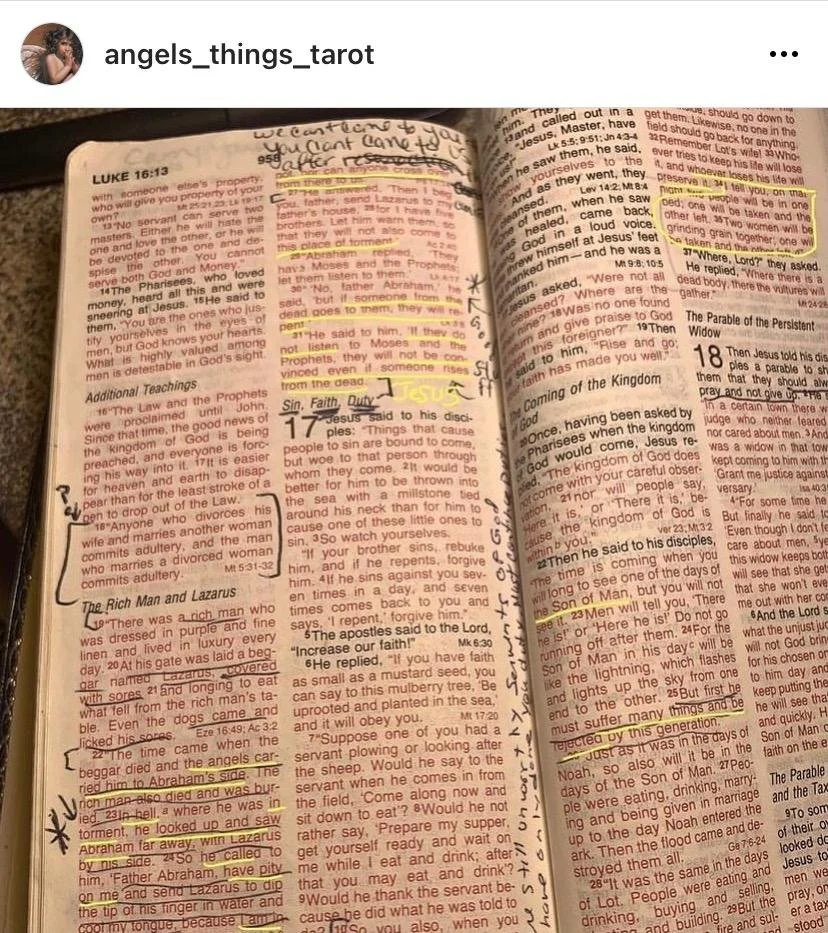 angels_things_tarot
LUKE 16:13
with someone else's property,
who will give you property of your
own?
13"No servant can serve two
masters. Either he will hate the
one and love the other, or he will
be devoted to the one and de-
spise the other. You cannot
serve both God and Money."
14The Pharisees, who loved
money, heard all this and were
sneering at Jesus. 15He said to
them, "You are the ones who jus-
tify yourselves in the eyes of
men, but God knows your hearts.
What is highly valued among
men is detestable in God's sight.
Additional Teachings
16"The Law and the Prophets
were proclaimed until John.
Since that time, the good news of
the kingdom of God is being
preached, and everyone is forc-
ing his way into it. 17It is easier
for heaven and earth to disap-
pear than for the least stroke of a
pen to drop out of the Law.
18"Anyone who divorces his
wife and marries another woman
commits adultery, and the man
who marries a divorced woman
commits adultery. Mt 5:31-32
The Rich Man and Lazarus
19"There was a rich man who
was dressed in purple and fine
linen and lived in luxury every
day. 20At his gate was laid a beg-
gar named Lazarus, covered
with sores 21and longing to eat
what fell from the rich man's ta-
ble. Even the dogs came and
licked his sores. Eze 16:49; Ac 3:2
22"The time came when the
beggar died and the angels car-
ried him to Abraham's side. The
rich man also died and was bur-
ied. 23In hell, a where he was in
torment, he looked up and saw
Abraham far away, with Lazarus
by his side. 24So he called to
him, 'Father Abraham, have pity
on me and send Lazarus to dip
the tip of his finger in water and
cool my tongue, because I am in
we can't come to you
you can't come to us
959 after
nor can anyone cross over
from there to us.'
27"He answered, 'Then I beg
you, father, send Lazarus to my
father's house, 28for I have five
brothers. Let him warn them, so
that they will not also come to
this place of torment.'
29"Abraham replied, 'They
have Moses and the Prophets;
let them listen to them.'
30"'No, father Abraham,' he
said, 'but if someone from the
dead goes to them, they will re-
pent.'
31"He said to him, 'If they do
not listen to Moses and the
Prophets, they will not be con-
vinced even if someone rises
from the dead.'" Jesus
Sin, Faith, Duty
17 Jesus said to his disci-
ples: "Things that cause
people to sin are bound to come,
but woe to that person through
whom they come. 2It would be
better for him to be thrown into
the sea with a millstone tied
around his neck than for him to
cause one of these little ones to
sin. 3So watch yourselves.
"If your brother sins, rebuke
him, and if he repents, forgive
him. 4If he sins against you sev-
en times in a day, and seven
times comes back to you and
says, 'I repent,' forgive him."
5The apostles said to the Lord,
"Increase our faith!" Mk 6:30
6He replied, "If you have faith
as small as a mustard seed, you
can say to this mulberry tree, 'Be
uprooted and planted in the sea,'
and it will obey you. Mt 17:20
7"Suppose one of you had a
servant plowing or looking after
the sheep. Would he say to the
servant when he comes in from
the field, 'Come along now and
sit down to eat'? 8Would he not
rather say, 'Prepare my supper,
get yourself ready and wait on
me while I eat and drink; after
that you may eat and drink'?
9Would he thank the servant be-
cause he did what he was told to
do? 10So you also, when you
still unworthy servants of God
him. They
and called out in a
"Jesus, Master, have
Lk 5:5; 9:51; Jn 4:3-4
he saw them, he said,
yourselves to the
And as they went, they
Lev 14:2; Mt 8:4
of them, when he saw
was healed, came back,
God in a loud voice.
threw himself at Jesus' feet
thanked him—and he was a
Mt 9:8; 10:5
asked, "Were not all
Where are the
18Was no one found
and give praise to God
this foreigner?" 19Then
said to him, "Rise and go;
faith has made you well."
Coming of the Kingdom
of God
20Once, having been asked by
Pharisees when the kingdom
God would come, Jesus re-
"The kingdom of God does
come with your careful obser-
21nor will people say,
it is,' or 'There it is,' be-
cause the kingdom of God is
within b you." ver 23; Mt 3:2
22Then he said to his disciples,
"The time is coming when you
will long to see one of the days of
the Son of Man, but you will not
see it. 23Men will tell you, 'There
he is!' or 'Here he is!' Do not go
running off after them. 24For the
Son of Man in his day c will be
like the lightning, which flashes
and lights up the sky from one
end to the other. 25But first he
must suffer many things and be
rejected by this generation.
26"Just as it was in the days of
Noah, so also will it be in the
days of the Son of Man. 27Peo-
ple were eating, drinking, marry-
ing and being given in marriage
up to the day Noah entered the
ark. Then the flood came and de-
stroyed them all. Ge 7:6-24
28"It was the same in the days
of Lot. People were eating and
drinking, buying and selling,
and building. 29But the
fire and sul-
should go down to
get them. Likewise, no one in the
field should go back for anything.
32Remember Lot's wife! 33Who-
ever tries to keep his life will lose
it, and whoever loses his life will
preserve it. 34I tell you, on that
night two people will be in one
bed; one will be taken and the
other left. 35Two women will be
grinding grain together; one will
be taken and the other left.
37"Where, Lord?" they asked.
He replied, "Where there is a
dead body, there the vultures will
gather." Mt 24:28
The Parable of the Persistent
Widow
18 Then Jesus told his dis
ples a parable to sh
them that they should alw
pray and not give up. 2He
"In a certain town there w
judge who neither feared
nor cared about men. 3And
was a widow in that tow
kept coming to him with th
'Grant me justice against
versary.'
4"For some time he
But finally he said to
'Even though I don't fe
care about men, 5ye
this widow keeps both
will see that she get
that she won't eve
me out with her co
6And the Lord s
what the unjust juc
will not God bring
for his chosen or
to him day and
keep putting the
he will see tha
and quickly. H
Son of Man c
faith on the e
The Parable
and the Tax
9To som
of their o
looked do
Jesus to
men we
pray, or
er a tax
stood